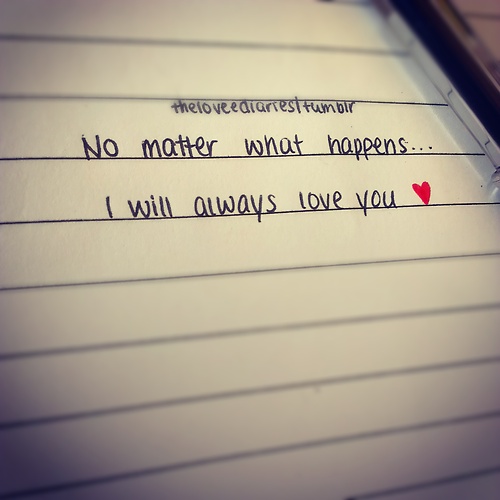 theloveediaries|tumblr
No matter what happens...
I will always love you ♥